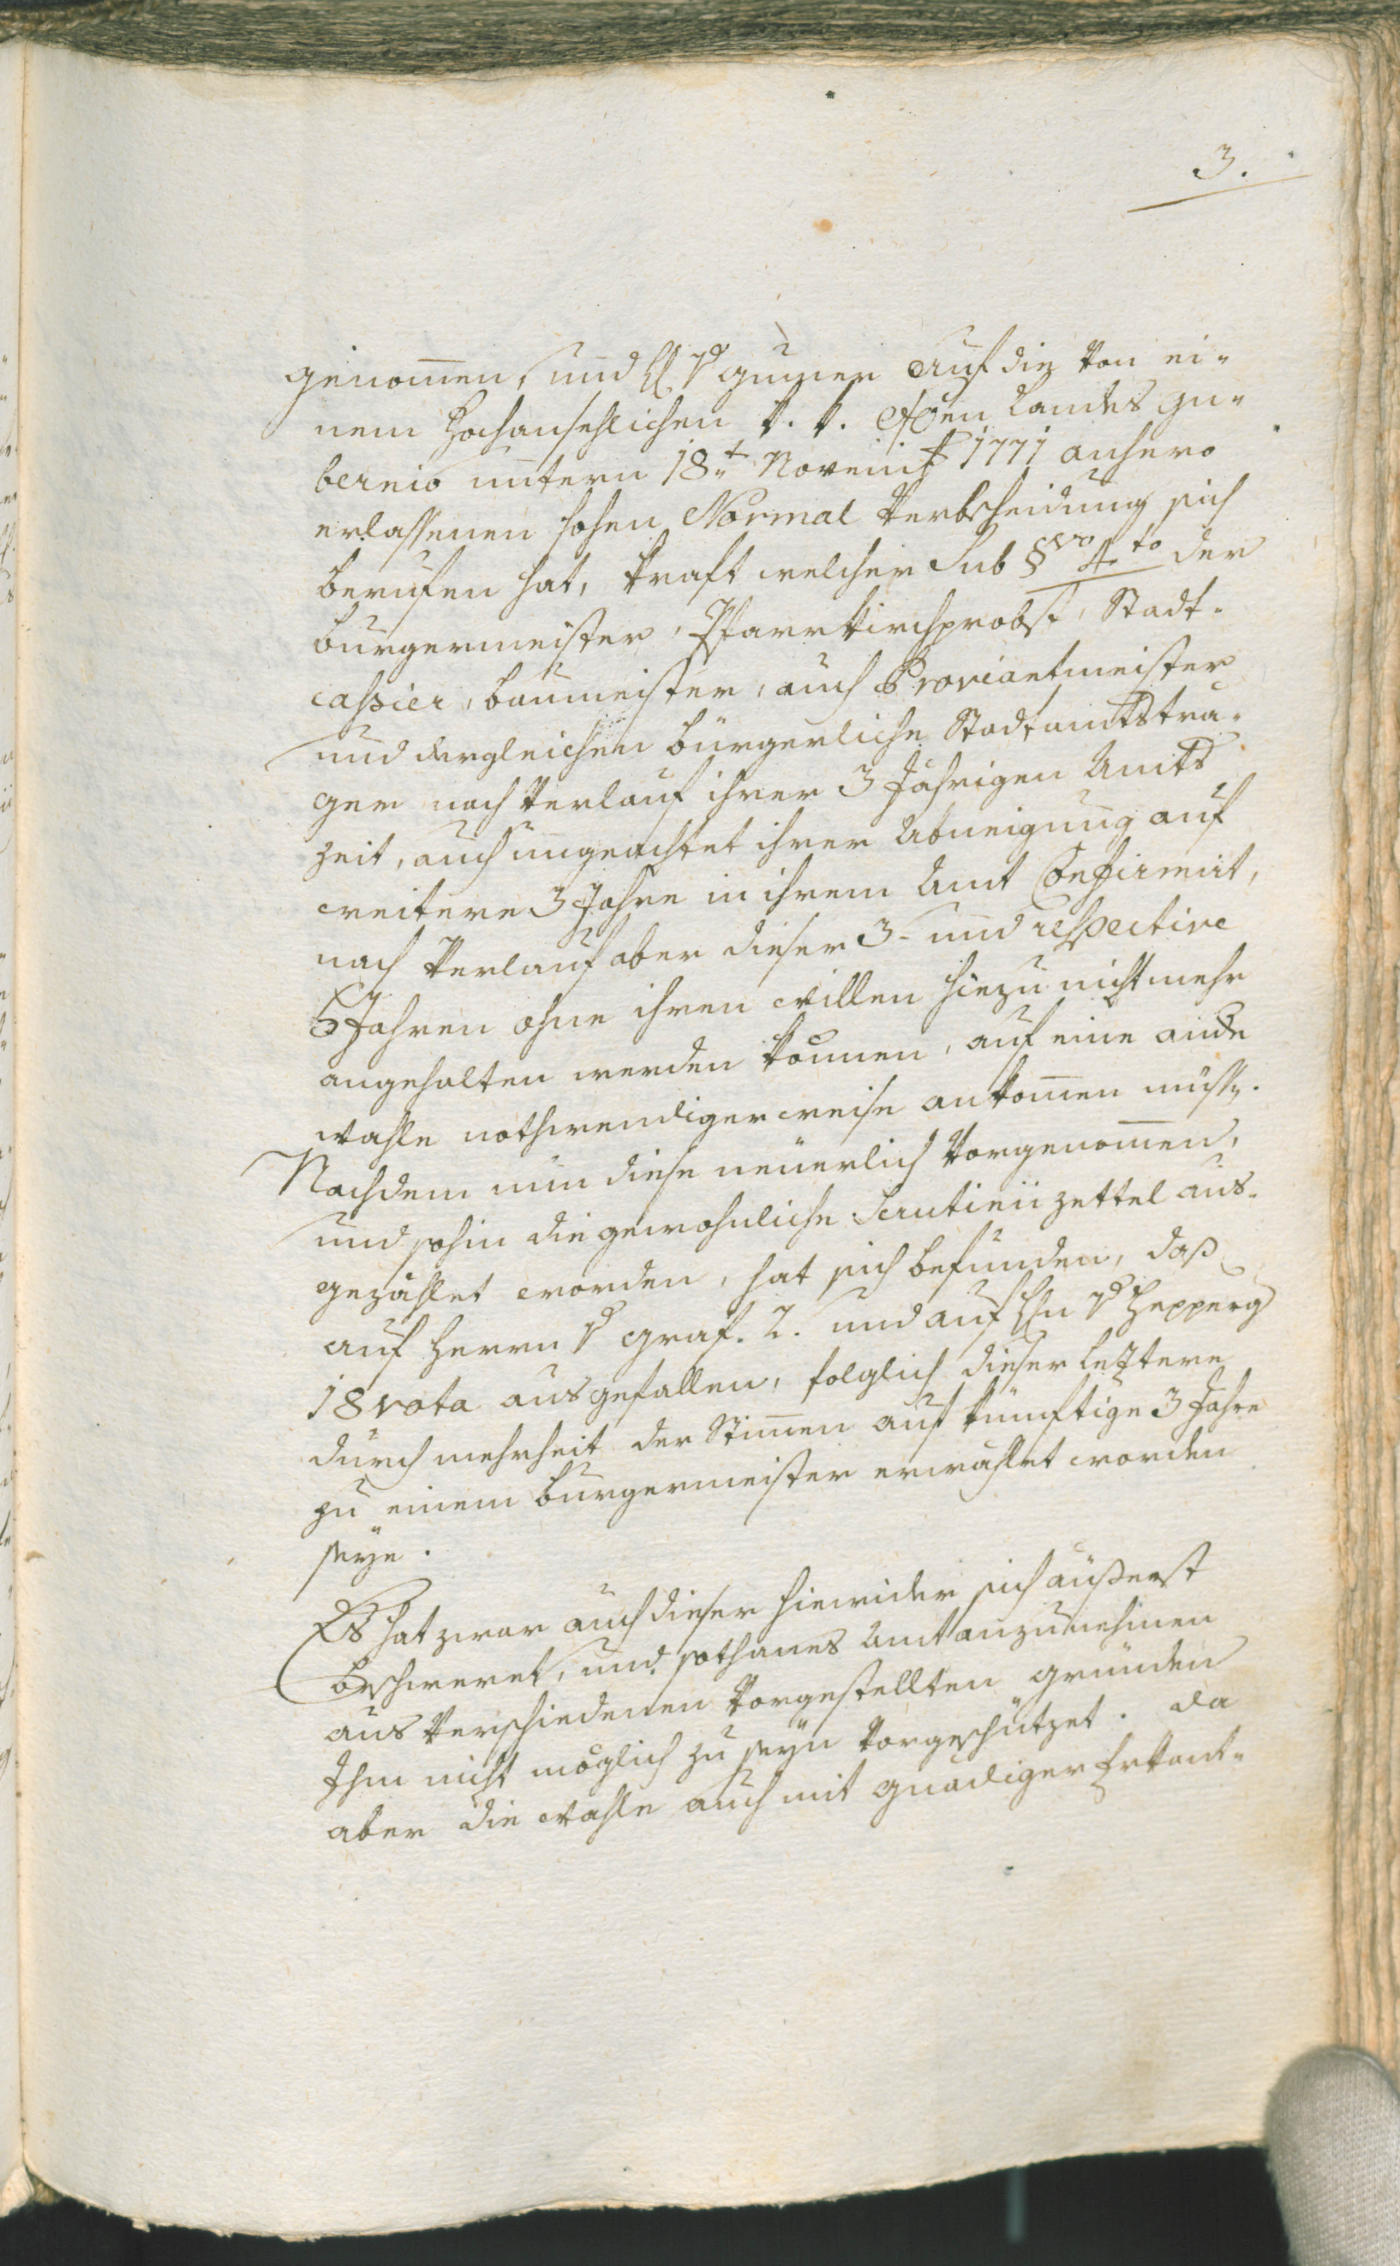 3.
genom̅en, und H. v gumer auf die von ei-
nem Hochansehlichen k. k. OÖen Landes gu-
bernio untern 18.t Novembr 1771 anhero
erlassenen hohen Normal verbscheidung sich
berufen hat, kraft welcher Sub §vo 4to der
burgermeister, Pfarrkirchprobst, Stadt-
cassier, baumeister, auch Proviantmeister
und dergleichen bürgerliche Stadtamtsträ-
ger nach verlauf ihrer 3 Jährigen Amts
zeit, auch ungeachtet ihrer Abneigung auf
weitere 3 Jahre in ihrem Amt Confirmirt,
nach verlauf aber dieser 3- und respective
6 Jahren ohne ihren willen hiezu nicht mehr
angehalten werden können, auf eine ande
wahle nothwendigerweise ankom̅en müsse.
Nachdem nun diese neuerlich vorgenom̅en,
und sohin die gewohnliche Scrutinii zettel aus-
gezählet worden, hat sich befunden, daß
auf Herrn v graf. 2. und auf Hn v Hepperg
18 vota ausgefallen, folglich dieser leztere
durch mehrheit der Stim̅en auf künftige 3 Jahre
zu einem burgermeister erwählet worden
seye.
Es hat zwar auch dieser hierwider sich äußerst
beschweret, und sothanes Amt anzunehmen
aus verschiedenen vorgestellten gründen
Ihm nicht möglich zu seyn vorgeschützet. da
aber die wahle auch mit gnädiger Erkant-